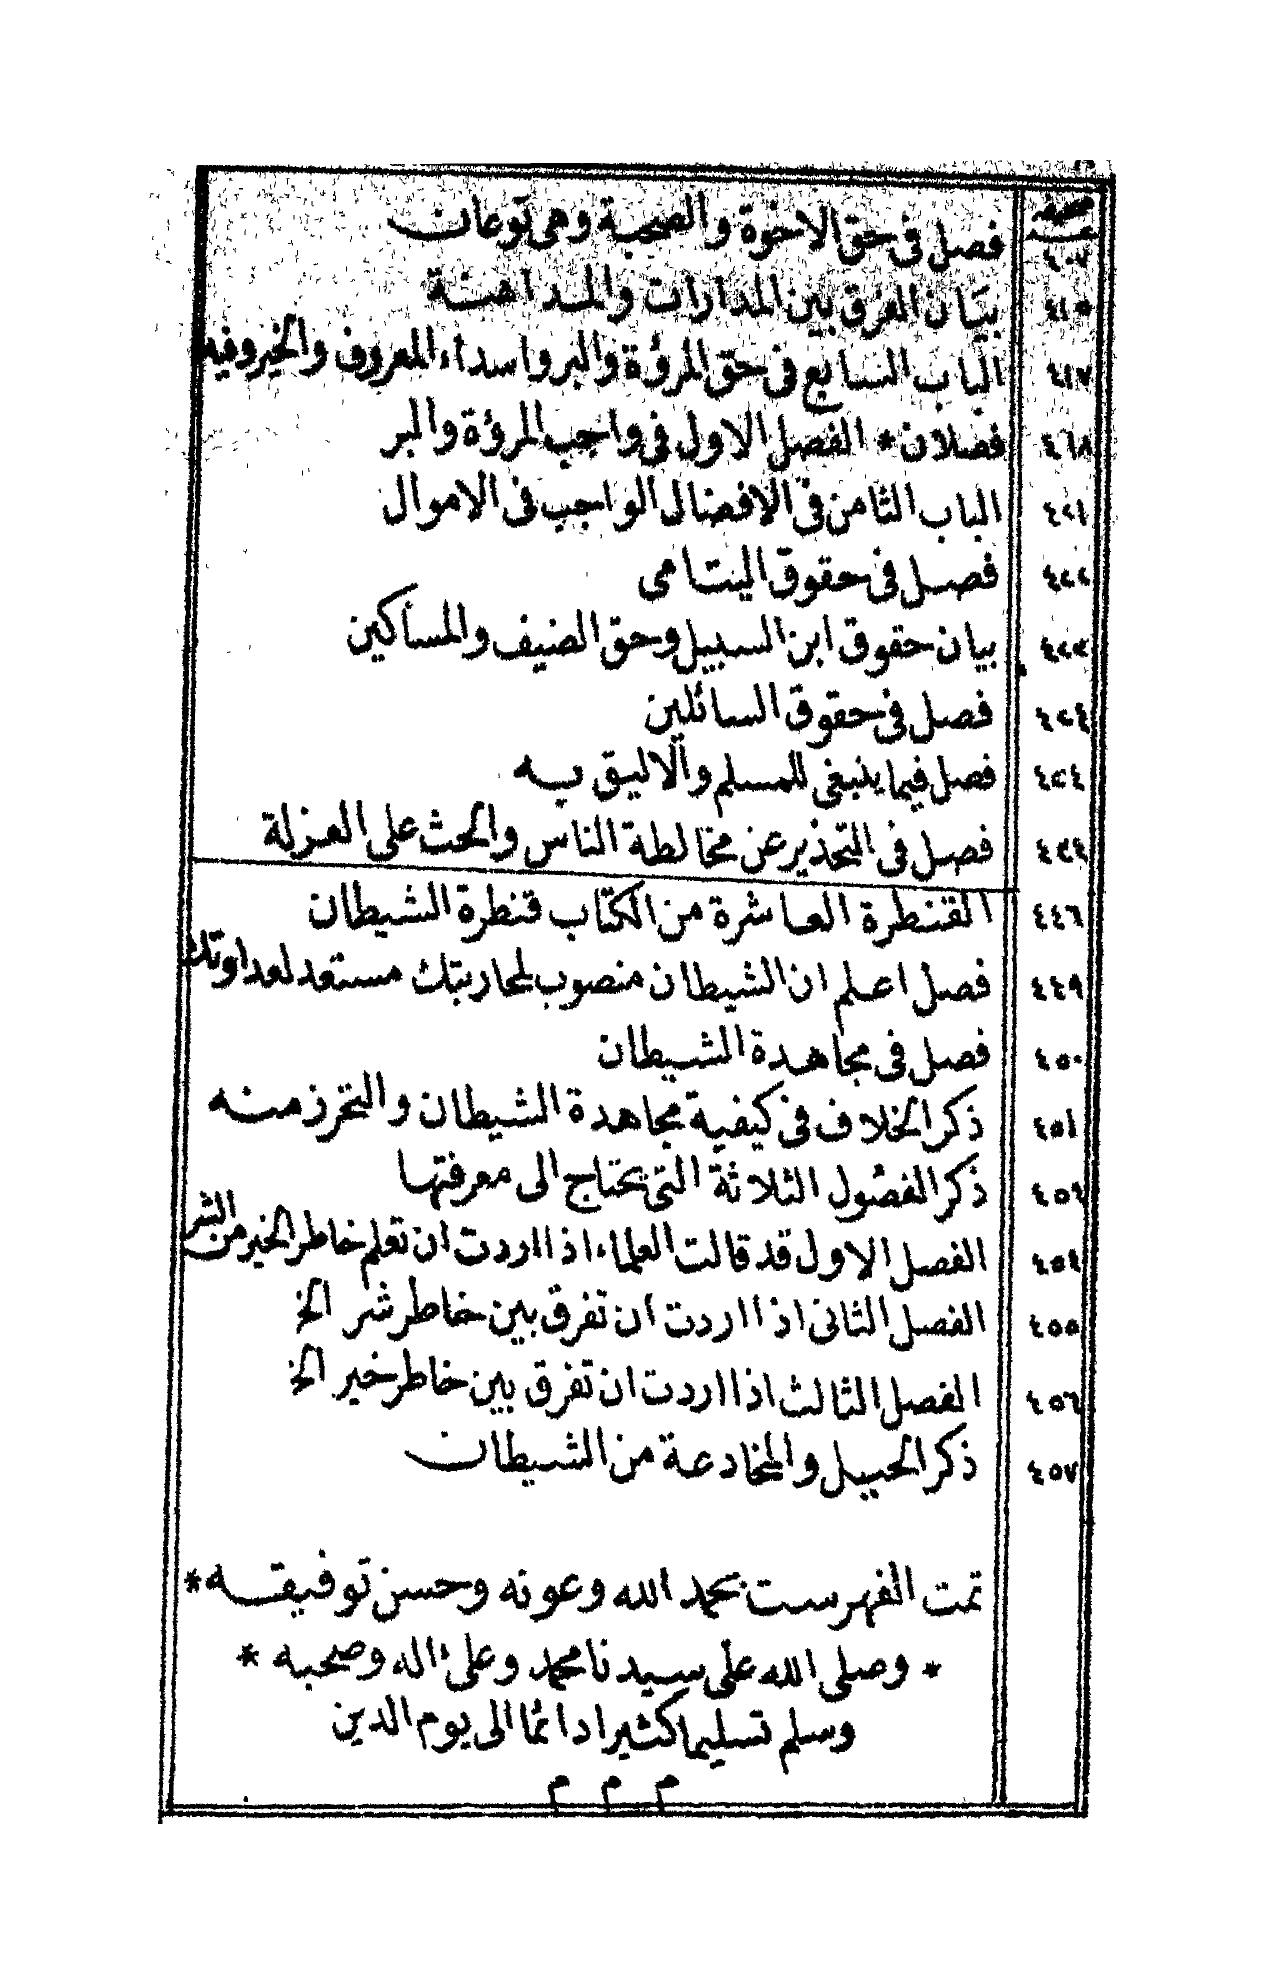 صحيفه
فصل فى حق الاخوة والصحبة وهى نوعان
٤١٥ بيان الفرق بين المدارات والمداهنة
٤١٧ الباب السابع فى حق المرؤة والبر واسداء المعروف والخير وفيه
٤١٨ فصلان * الفصل الاول فى واجب المرؤة والبر
٤٢١ الباب الثامن فى الافضال الواجب فى الاموال
٤٢٢ فصل فى حقوق اليتامى
٤٢٣ بيان حقوق ابن السبيل وحق الضيف والمساكين
٤٢٤ فصل فى حقوق السائلين
فصل فيما ينبغى للمسلم والاليق به
فصل فى التحذير عن مخالطة الناس والحث على العزلة
٤٤٦ القنطرة العاشرة من الكتاب قنطرة الشيطان
٤٤٩ فصل اعلم ان الشيطان منصوب لمحاربتك مستعد لعداوتك
٤٥٠ فصل فى مجاهدة الشيطان
٤٥١ ذكر الخلاف فى كيفية مجاهدة الشيطان والتحرز منه
٤٥٤ ذكر الفصول الثلاثة التى يحتاج الى معرفتها
٤٥٤ الفصل الاول قد قالت العلماء اذا اردت ان تعلم خاطر الخير من الشر
٤٥٥ الفصل الثانى اذا اردت ان تفرق بين خاطر شر الخ
٤٥٦ الفصل الثالث اذا اردت ان تفرق بين خاطر خير الخ
٤٥٧ ذكر الحيل والمخادعة من الشيطان
تمت الفهرست بحمد الله وعونه وحسن توفيقه *
* وصلى الله على سيدنا محمد وعلى ءاله وصحبه *
وسلم تسليما كثيرا دائما الى يوم الدين
م م م